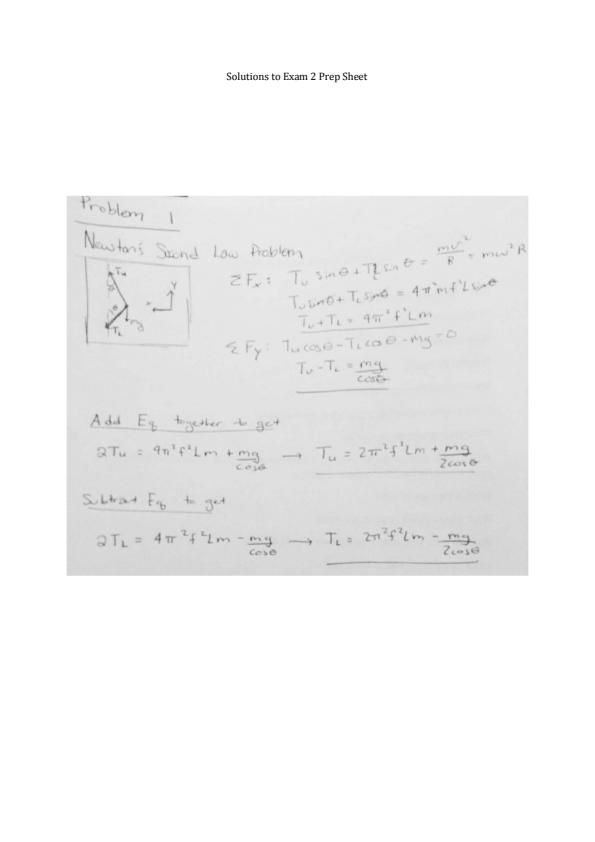 Solutions to Exam 2 Prep Sheet
Problem 1
Newton's Second Law Problem
Tu
θ
θ
TL
mg
Y
x
ΣFx: Tu sinθ + TL sinθ = mv²/R = mω²R
Tu sinθ + TL sinθ = 4π²mf²L sinθ
Tu + TL = 4π²f²Lm
ΣFy: Tu cosθ - TL cosθ - mg = 0
Tu - TL = mg/cosθ
Add Eq together to get
2Tu = 4π²f²Lm + mg/cosθ → Tu = 2π²f²Lm + mg/2cosθ
Subtract Eq to get
2TL = 4π²f²Lm - mg/cosθ → TL = 2π²f²Lm - mg/2cosθ